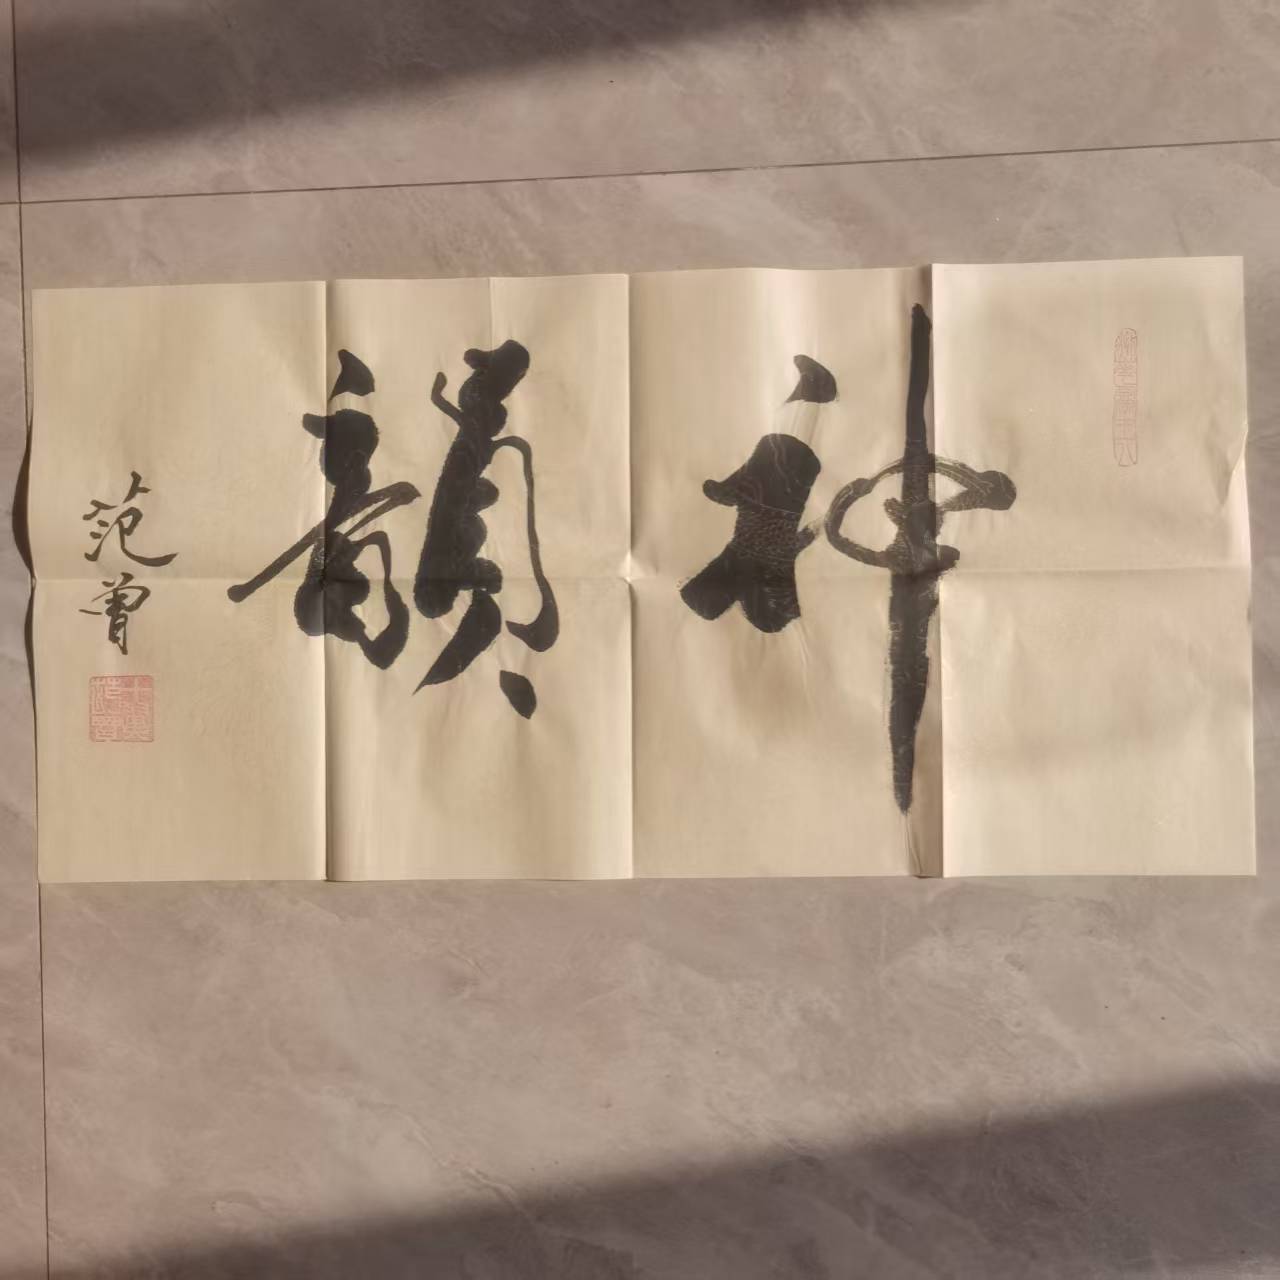 神韻
范曾